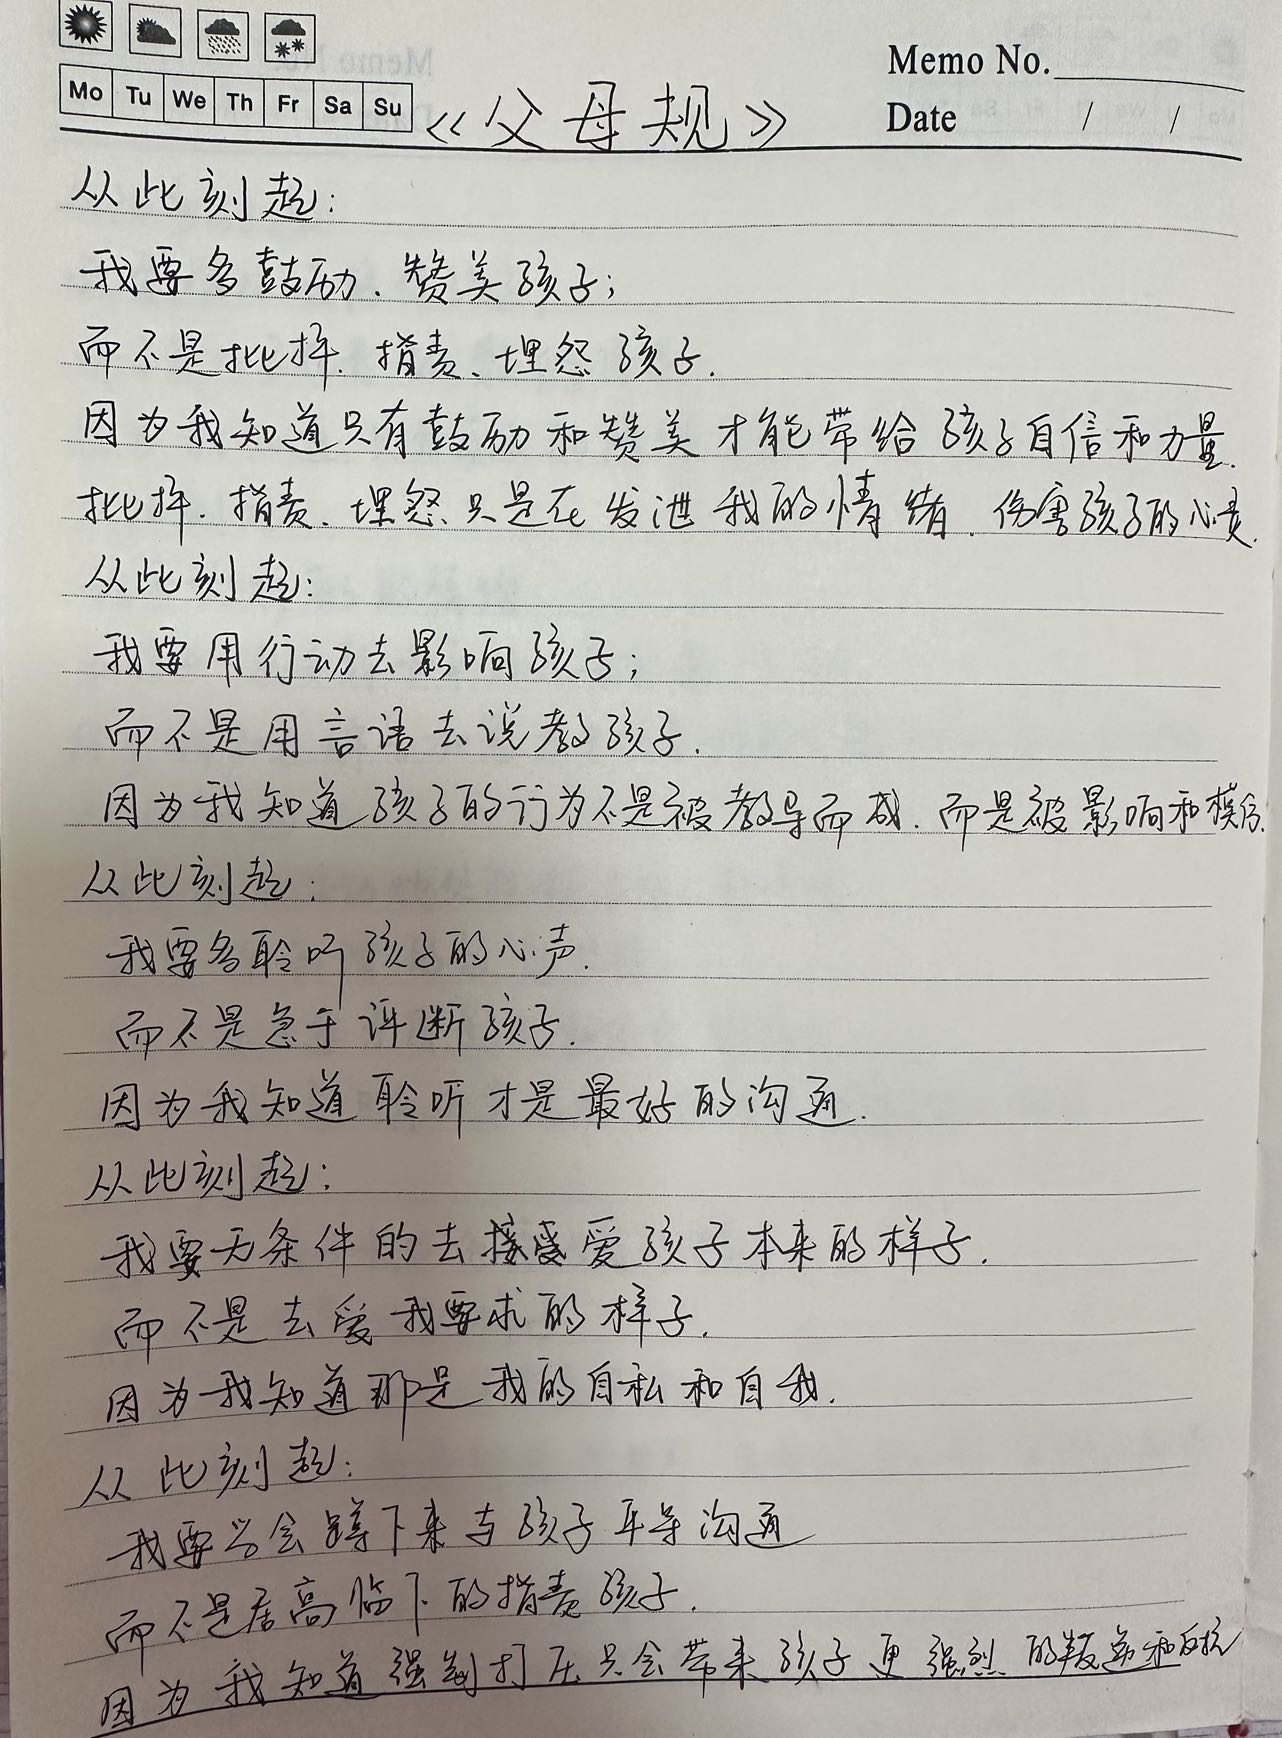 Mo Tu We Th Fr Sa Su
Memo No.
Date / /
《父母规》
从此刻起：
我要多鼓励、赞美孩子；
而不是批评、指责、埋怨孩子.
因为我知道只有鼓励和赞美才能带给孩子自信和力量.
批评、指责、埋怨只是在发泄我的情绪、伤害孩子的心灵.
从此刻起：
我要用行动去影响孩子；
而不是用言语去说教孩子.
因为我知道孩子的行为不是被教导而成、而是被影响和模仿.
从此刻起：
我要多聆听孩子的心声.
而不是急于评断孩子.
因为我知道聆听才是最好的沟通.
从此刻起：
我要无条件的去接受爱孩子本来的样子.
而不是去爱我要求的样子.
因为我知道那是我的自私和自我.
从此刻起：
我要学会蹲下来与孩子平等沟通
而不是居高临下的指责孩子.
因为我知道强制打压只会带来孩子更强烈的叛逆和反抗